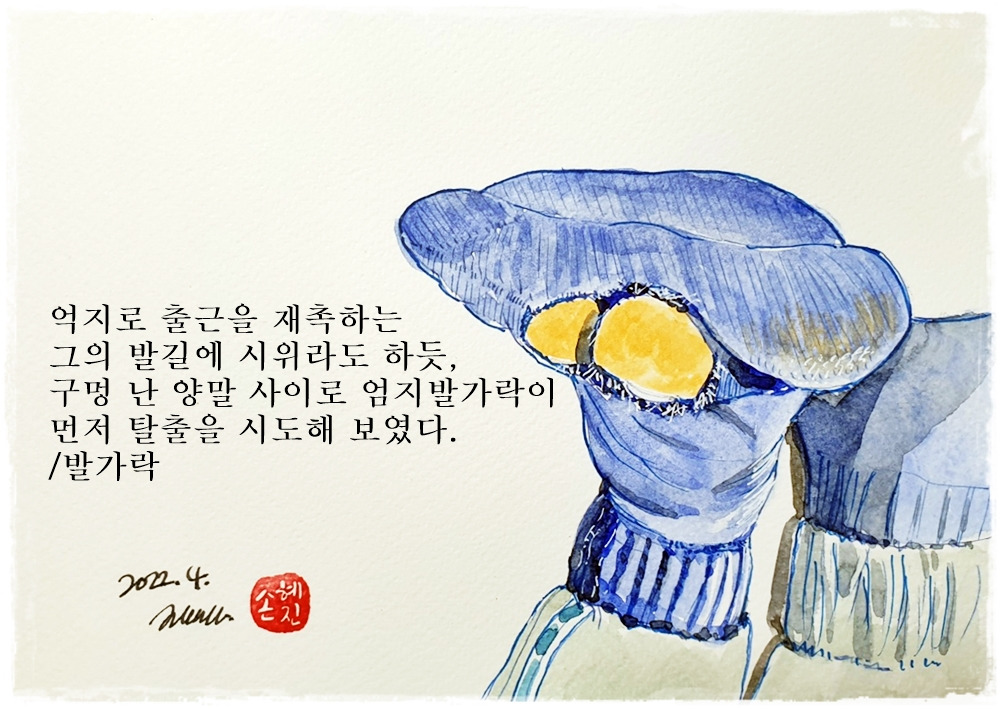 억지로 출근을 재촉하는
그의 발길에 시위라도 하듯,
구멍 난 양말 사이로 엄지발가락이
먼저 탈출을 시도해 보였다.
/발가락
2022.4.
손혜진